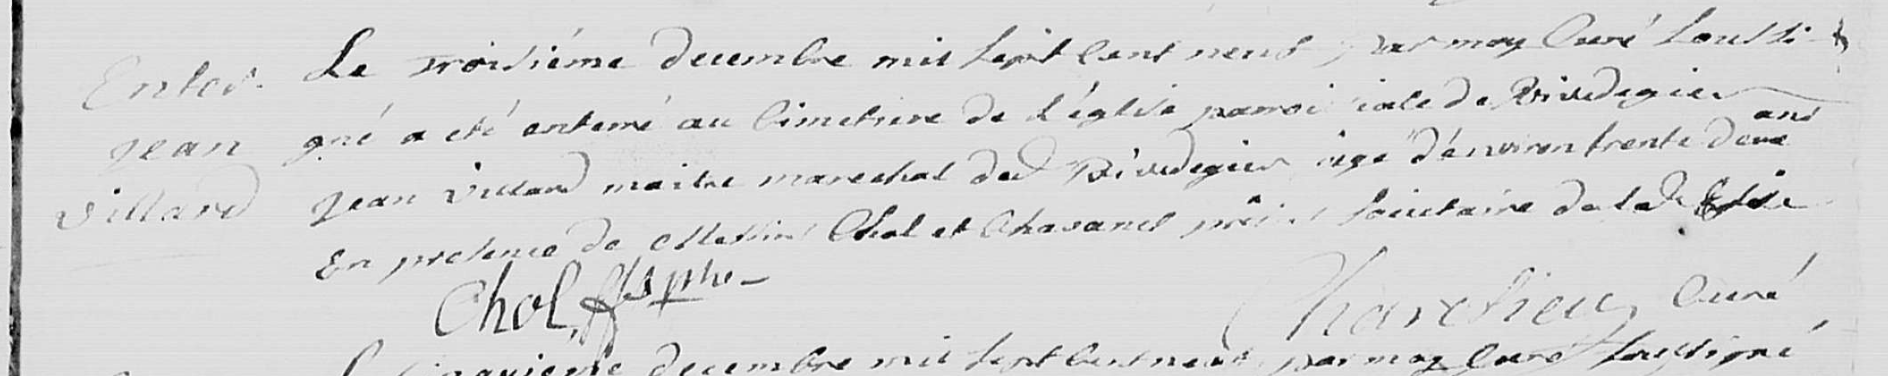 Enter.
Jean
Villard
Le troisiéme decembre mil sept cent neuf par moy Curé soussi
gné a eté enterré au Cimetiere de l'église parroissiale de Rivedegier
Jean Villard maitre marechal dud Rivedegier agé d'énviron trente deux ans
En presence de Messires Chol et Chavanes prêtres societaire de lad Eglise
Chol, ptre
Charelieu, Curé
Le cinquieme decembre mil sept cent neuf par moy Curé soussigné